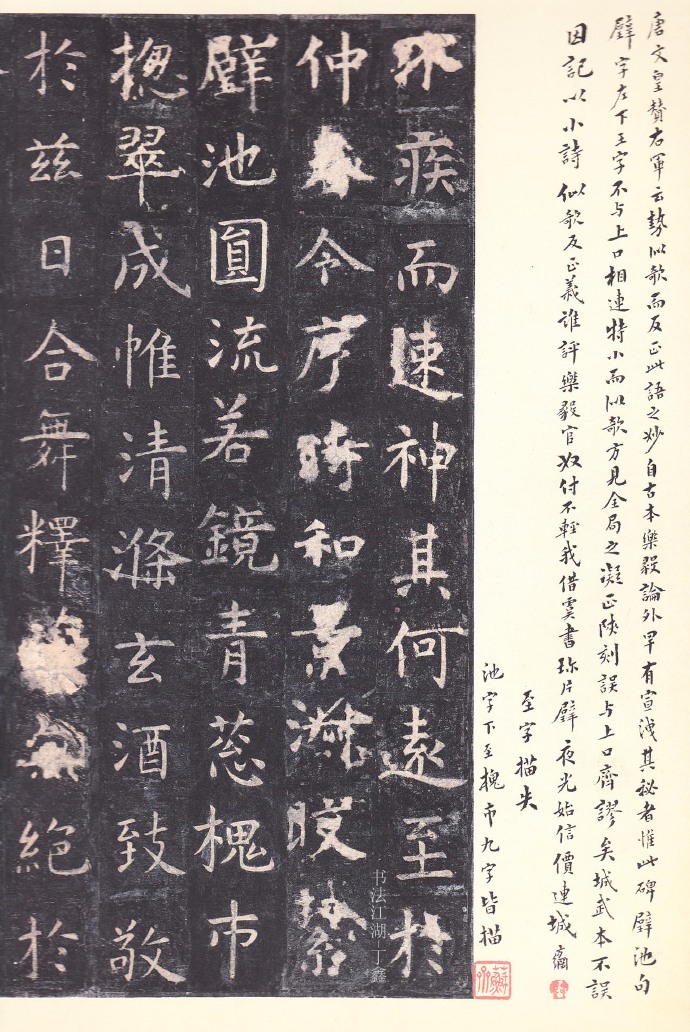 唐文皇贊右軍云勢似欹而反正此語之妙自古本樂毅論外罕有宣洩其秘者惟此碑璧池句
璧字左下王字不与上口相連特小而似欹方見全局之凝正陝刻誤与上口齊謬矣城武本不誤
因記以小詩 似欹反正義誰評樂毅官奴付不輕我借虞書珍片璧夜光始信價連城
至字描失
池字下至槐市九字皆描
不疾而速神其何遠至於
仲春令序時和景淑晈絜
璧池圓流若鏡青蔥槐市
揔翠成帷清滌玄酒致敬
於茲日合舞釋菜無絕於
书法江湖 丁鑫